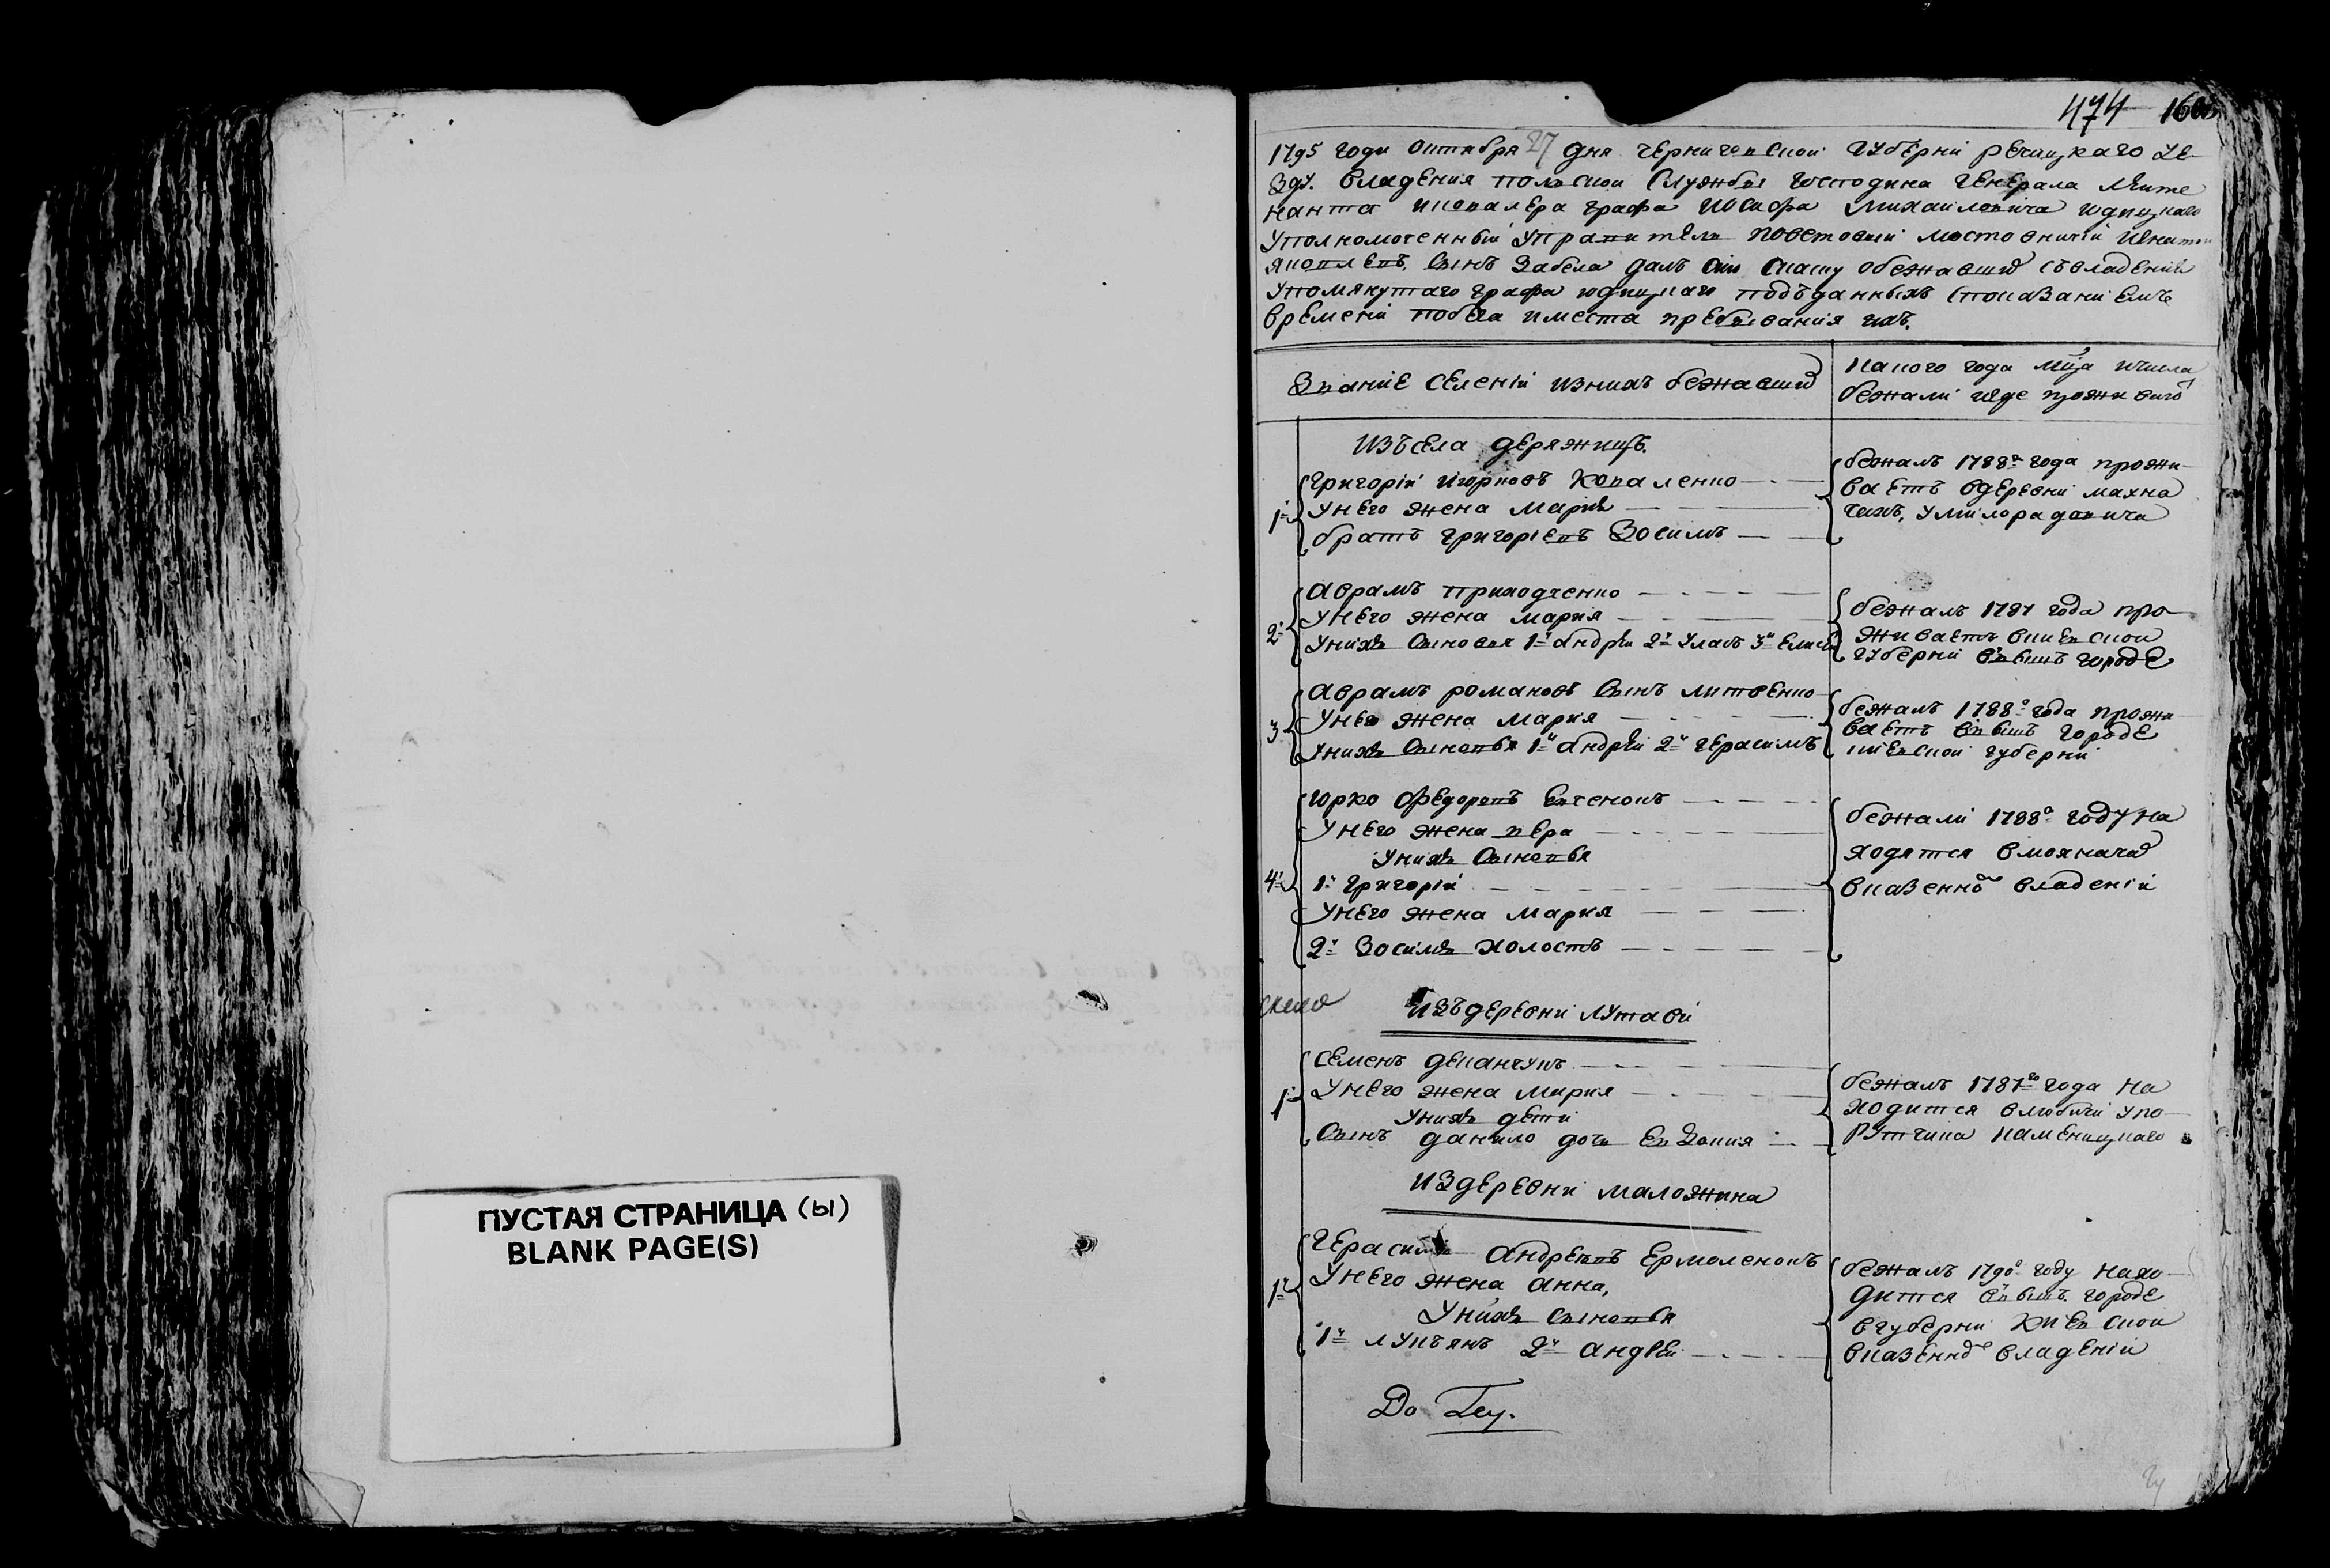 ПУСТАЯ СТРАНИЦА (ы)
BLANK PAGE(S)
474
1795 года октября 27 дня черниговской губерни речицкаго уе
зду. владения полской службы господина генерала леите
нанта икавалера графа иосифа михаиловича юдицкаго
уполномоченный управитель поветовий мостовничий
яковлевъ сынъ Забела далъ сию сказку обежавших съвладения
упомянутаго графа юдицкаго подъданныхъ споказаниемъ
времени побега иместа пребывания ихъ.
Звание селений изнихъ бежавших
какого года мца ичисла
бежали игде прожи
изъсела деряжицъ.
1й
григорій игорковъ коваленко
унего жена мария
братъ григоріевъ Зосимъ
бежалъ 1788о года прожи
ваетъ вдеревни махна
чахъ, умилорадовича
2й
аврамъ приходченко
унего жена мария
унихъ сыновья 1й андреи 2й уласъ 3й
бежалъ 1787 года про
живаетъ вкиевской
губерни городе
3
аврамъ романовъ сынъ литвенко
унего жена мария
унихъ сыновья 1й андреи 2й герасимъ
бежалъ 1788о года прожи
ваетъ городе
киевской губерни
4й
юрко федоровъ евченокъ
унего жена вера
унихъ сыновья
1й григорій
унего жена мария
2й Зосимъ холостъ
бежали 1788о году на
ходятся вмохнача
вказенно владении
изъдеревни лутави
1й
семенъ деканчукъ
унего жена мария
унихъ дети
сынъ данило дочь евдокия
бежалъ 1787го года на
ходится влюбичи упо
ручика каменицкаго
издеревни маложина
1й
герасимъ андреевъ ермоленокъ
унего жена анна,
унихъ сыновья
1й лукъянъ 2й андреи
бежалъ 1790о году нахо
дится городе
вгуберни киевской
вказенно владении
До